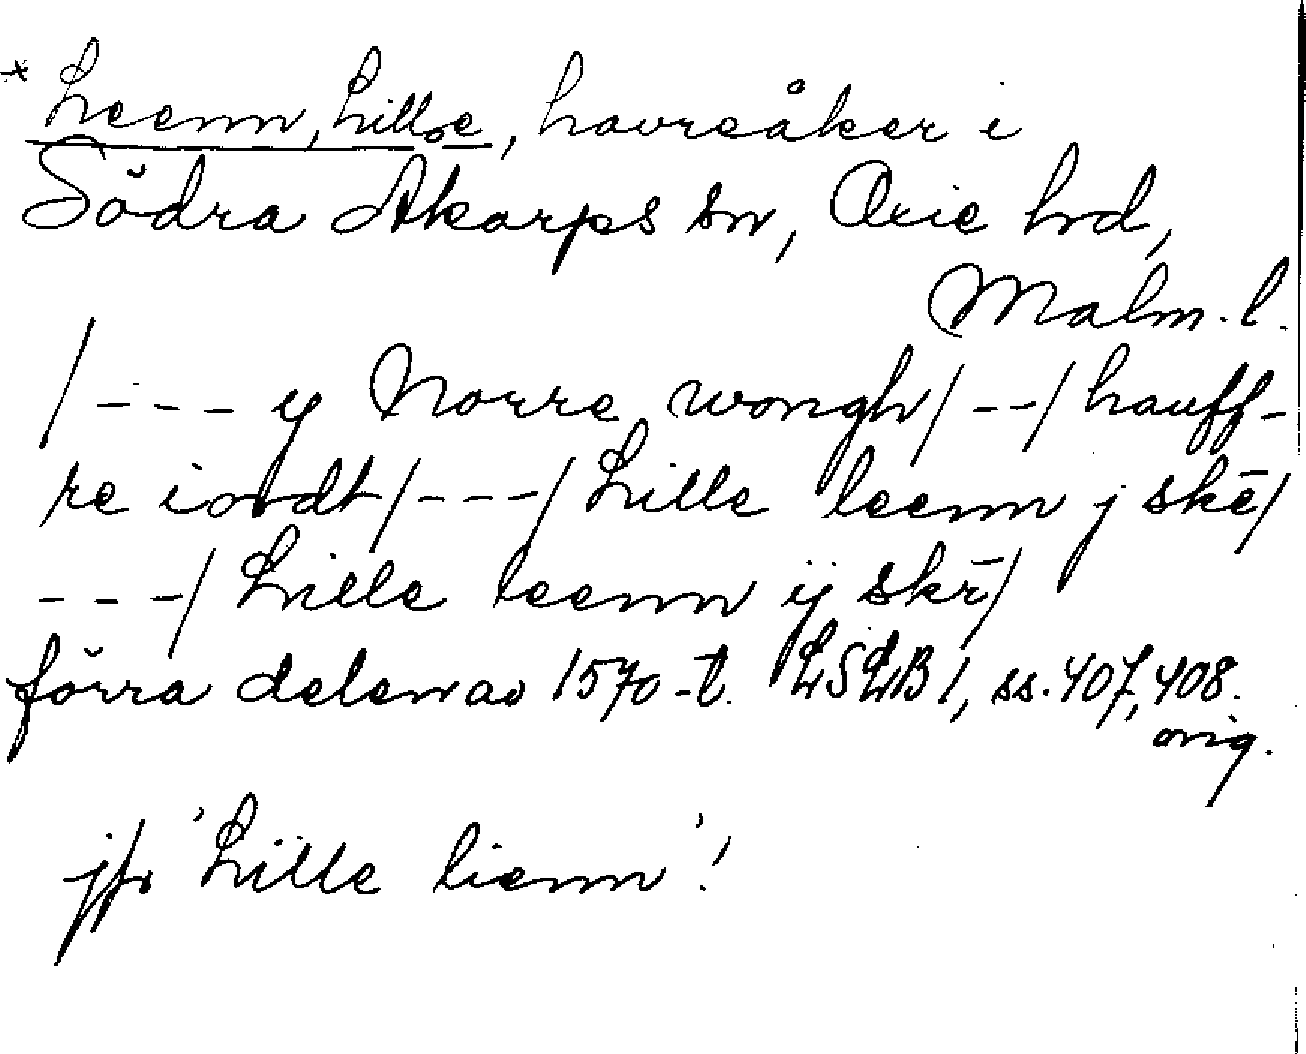 * Leenn, Lille, havreåker i
Södra Åkarps sn, Oxie hd,
Malm. l.
/ - - - y Norre wongh / - - / hauff-
re iordt / - - - / Lille leenn j skē /
- - - / Lille leenn ij skr̄ /
förra delen av 1570-t. LSLB 1, ss. 407, 408.
orig.
jfr 'Lille lienn'!